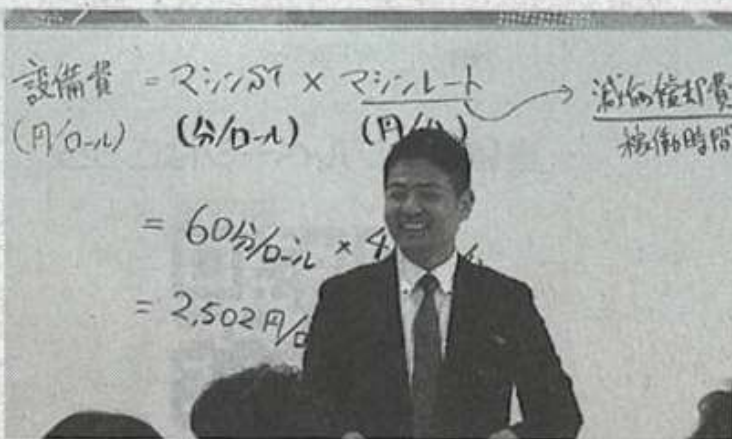 設備費 = マシンST × マシンレート → 減価償却費
(円/ロール) (分/ロール) (円/分) 稼働時間
= 60分/ロール × 4
= 2,502円/ロ